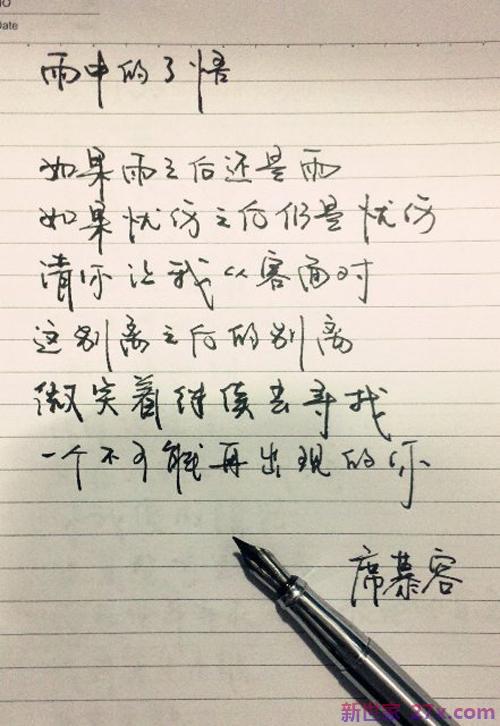 NO
Date
雨中的了悟
如果雨之后还是雨
如果忧伤之后仍是忧伤
请你让我从容面对
这别离之后的别离
微笑着继续去寻找
一个不可能再出现的你
席慕容
新世家 27x.com